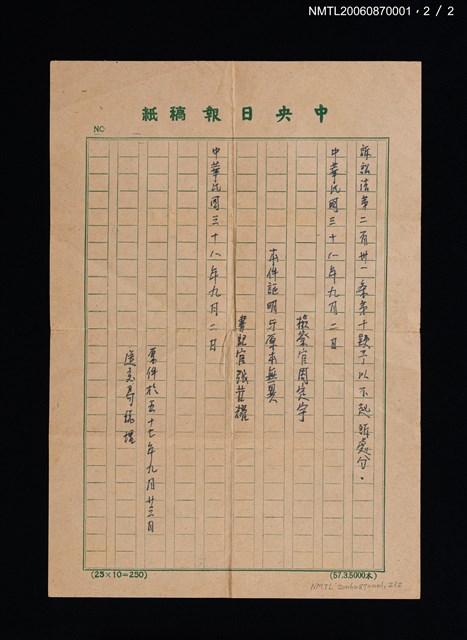 NMTL20060870001，2 / 2
中央日報稿紙
NO
訴訟法第二百卅一條第十款予以不起訴處分。
中華民國三十八年九月二日
檢察官周定宇
本件証明与原本無異
書記官張
中華民國三十八年九月二日
原件於五十七年九月廿三日
(25×10=250)
(57.3.5000本)
NMTL 20060870001, 2/2